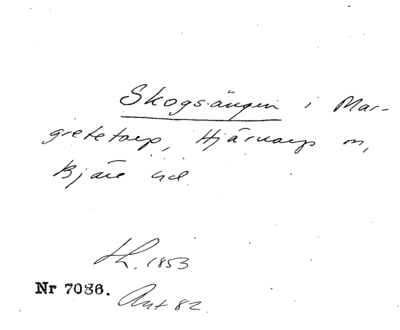 Skogsängen i Mar-
gretetorp, Hjärnarps m,
Bjäre hd.
Lh. 1853
Nr 7086. Ant 82